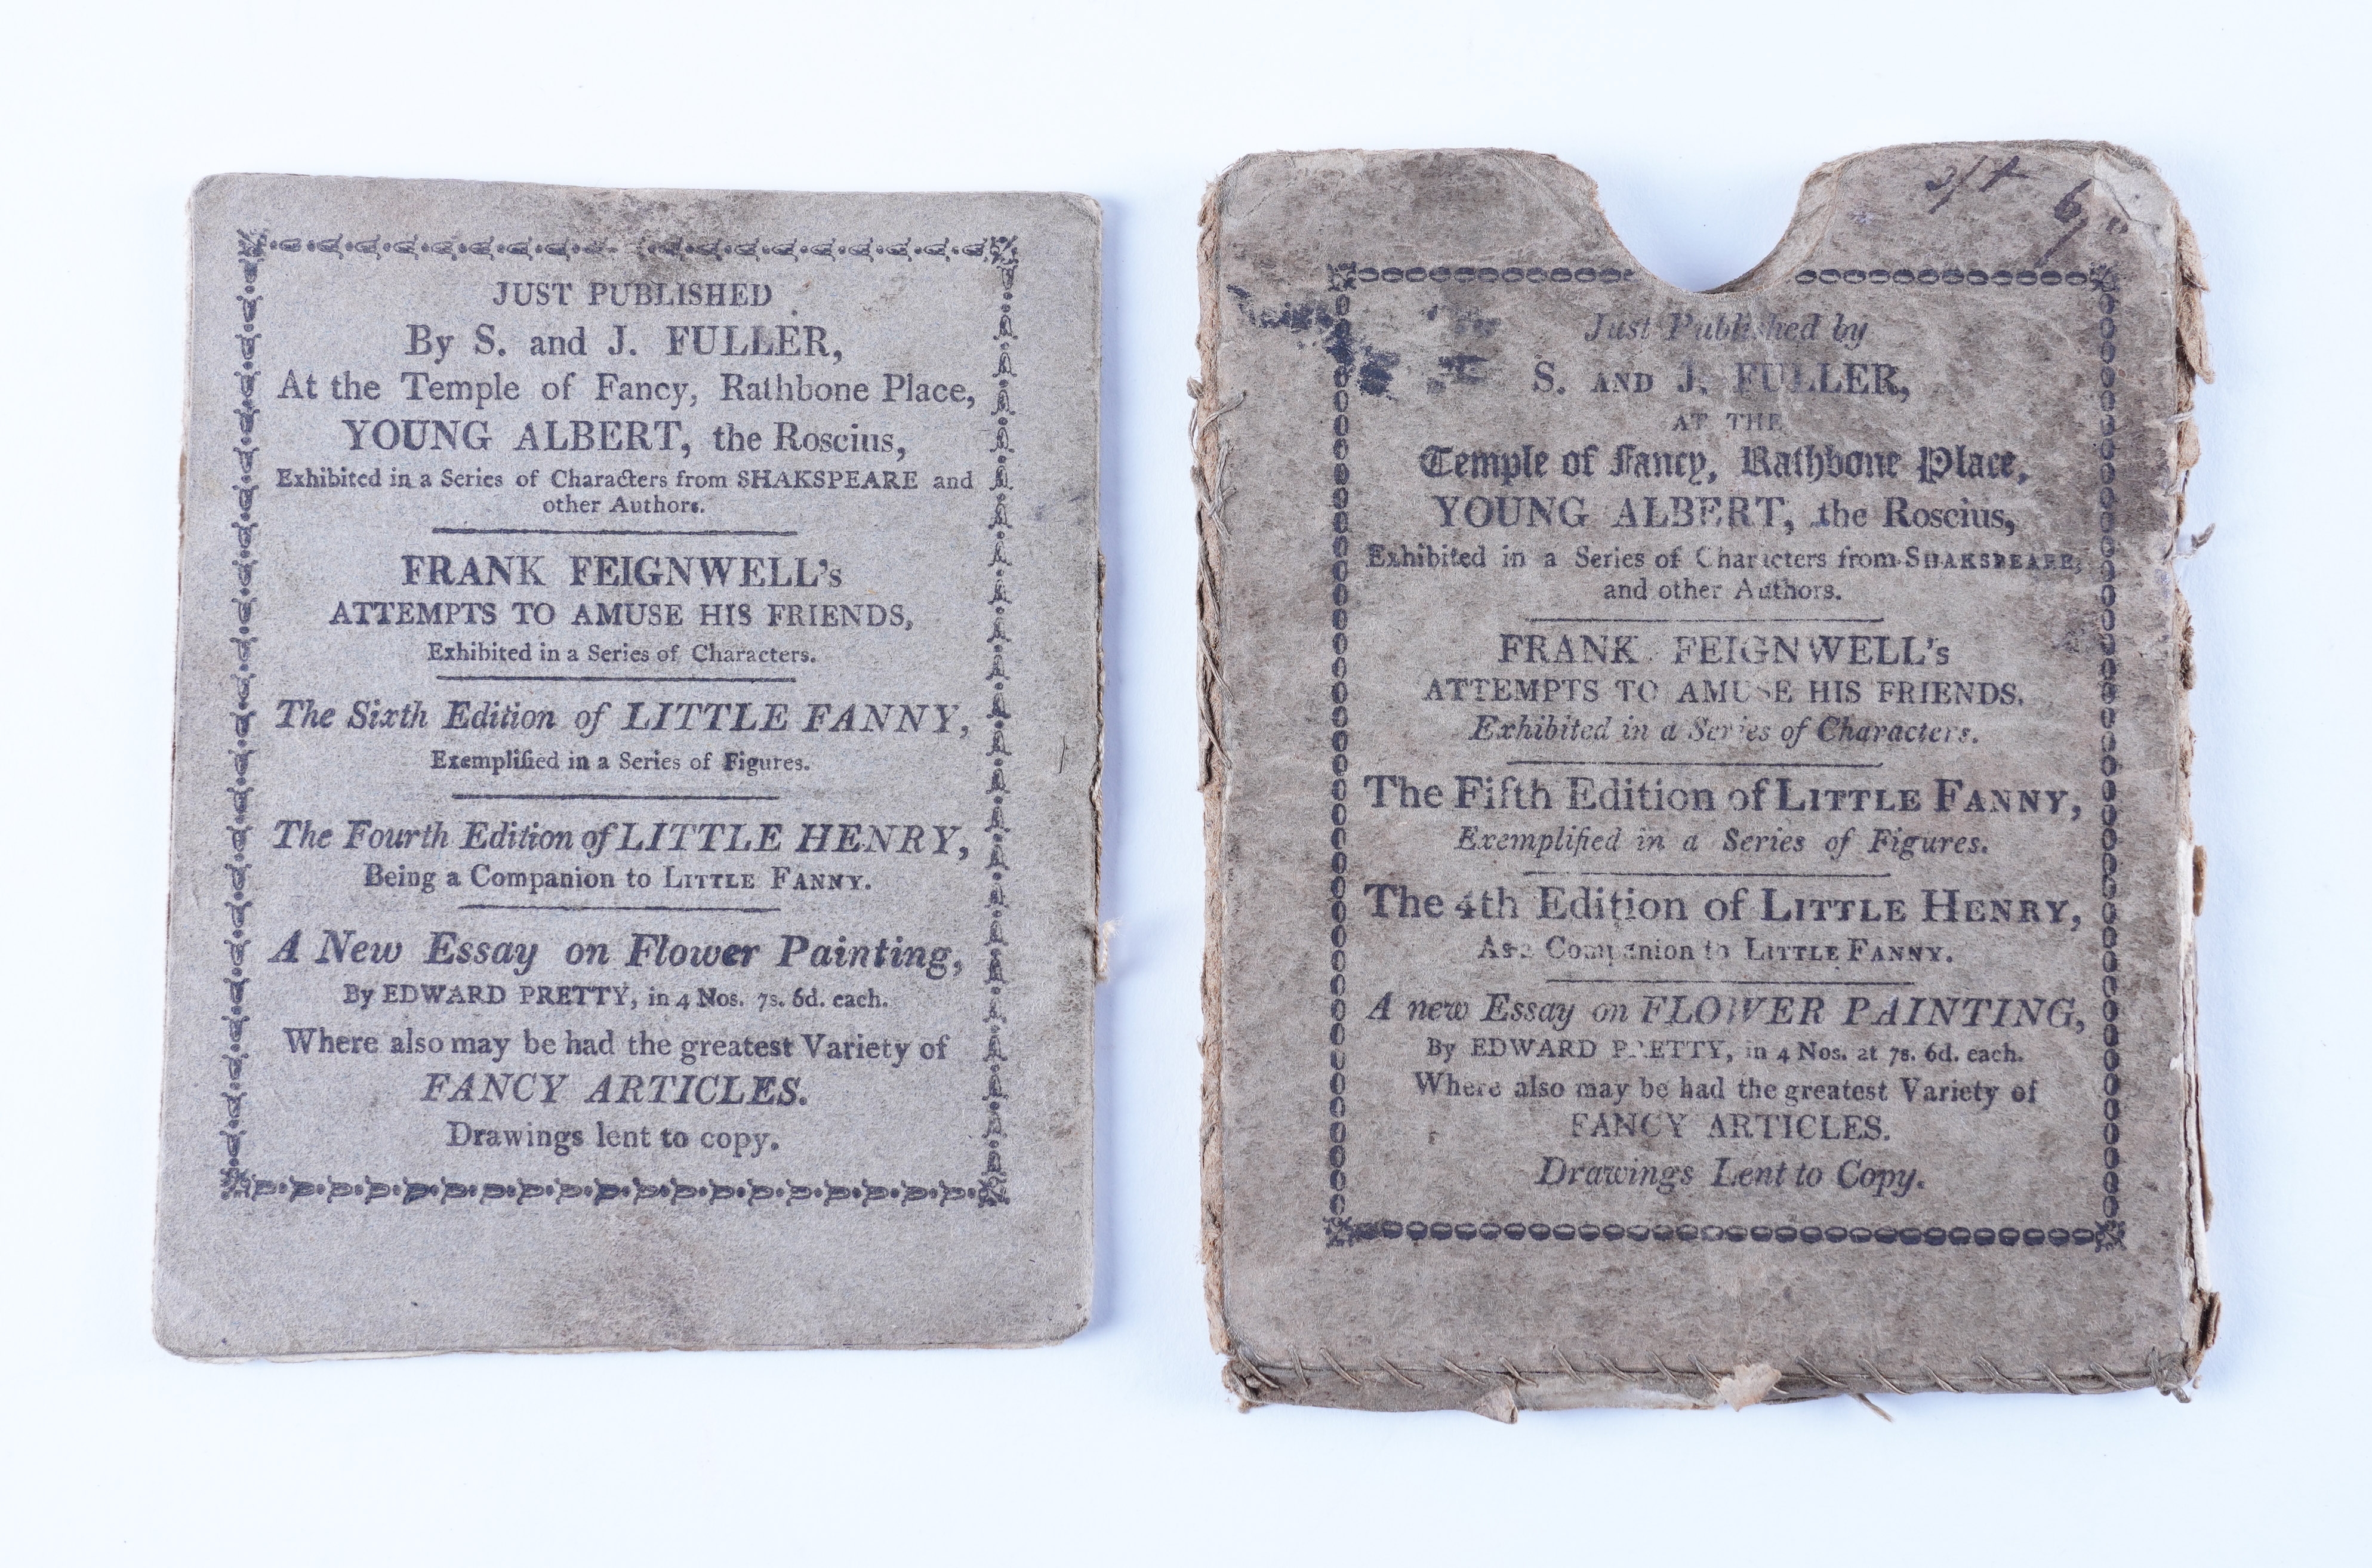 JUST PUBLISHED
By S. and J. FULLER,
At the Temple of Fancy, Rathbone Place,
YOUNG ALBERT, the Roscius,
Exhibited in a Series of Characters from SHAKSPEARE and
other Authors.
FRANK FEIGNWELL's
ATTEMPTS TO AMUSE HIS FRIENDS,
Exhibited in a Series of Characters.
The Sixth Edition of LITTLE FANNY,
Exemplified in a Series of Figures.
The Fourth Edition of LITTLE HENRY,
Being a Companion to LITTLE FANNY.
A New Essay on Flower Painting,
By EDWARD PRETTY, in 4 Nos. 7s. 6d. each.
Where also may be had the greatest Variety of
FANCY ARTICLES.
Drawings lent to copy.
Just Published by
S. AND J. FULLER,
AT THE
Temple of Fancy, Rathbone Place,
YOUNG ALBERT, the Roscius,
Exhibited in a Series of Characters from SHAKSPEARE,
and other Authors.
FRANK FEIGNWELL's
ATTEMPTS TO AMUSE HIS FRIENDS.
Exhibited in a Series of Characters.
The Fifth Edition of LITTLE FANNY,
Exemplified in a Series of Figures.
The 4th Edition of LITTLE HENRY,
As a Companion to LITTLE FANNY.
A new Essay on FLOWER PAINTING,
By EDWARD PRETTY, in 4 Nos. at 7s. 6d. each.
Where also may be had the greatest Variety of
FANCY ARTICLES.
Drawings Lent to Copy.